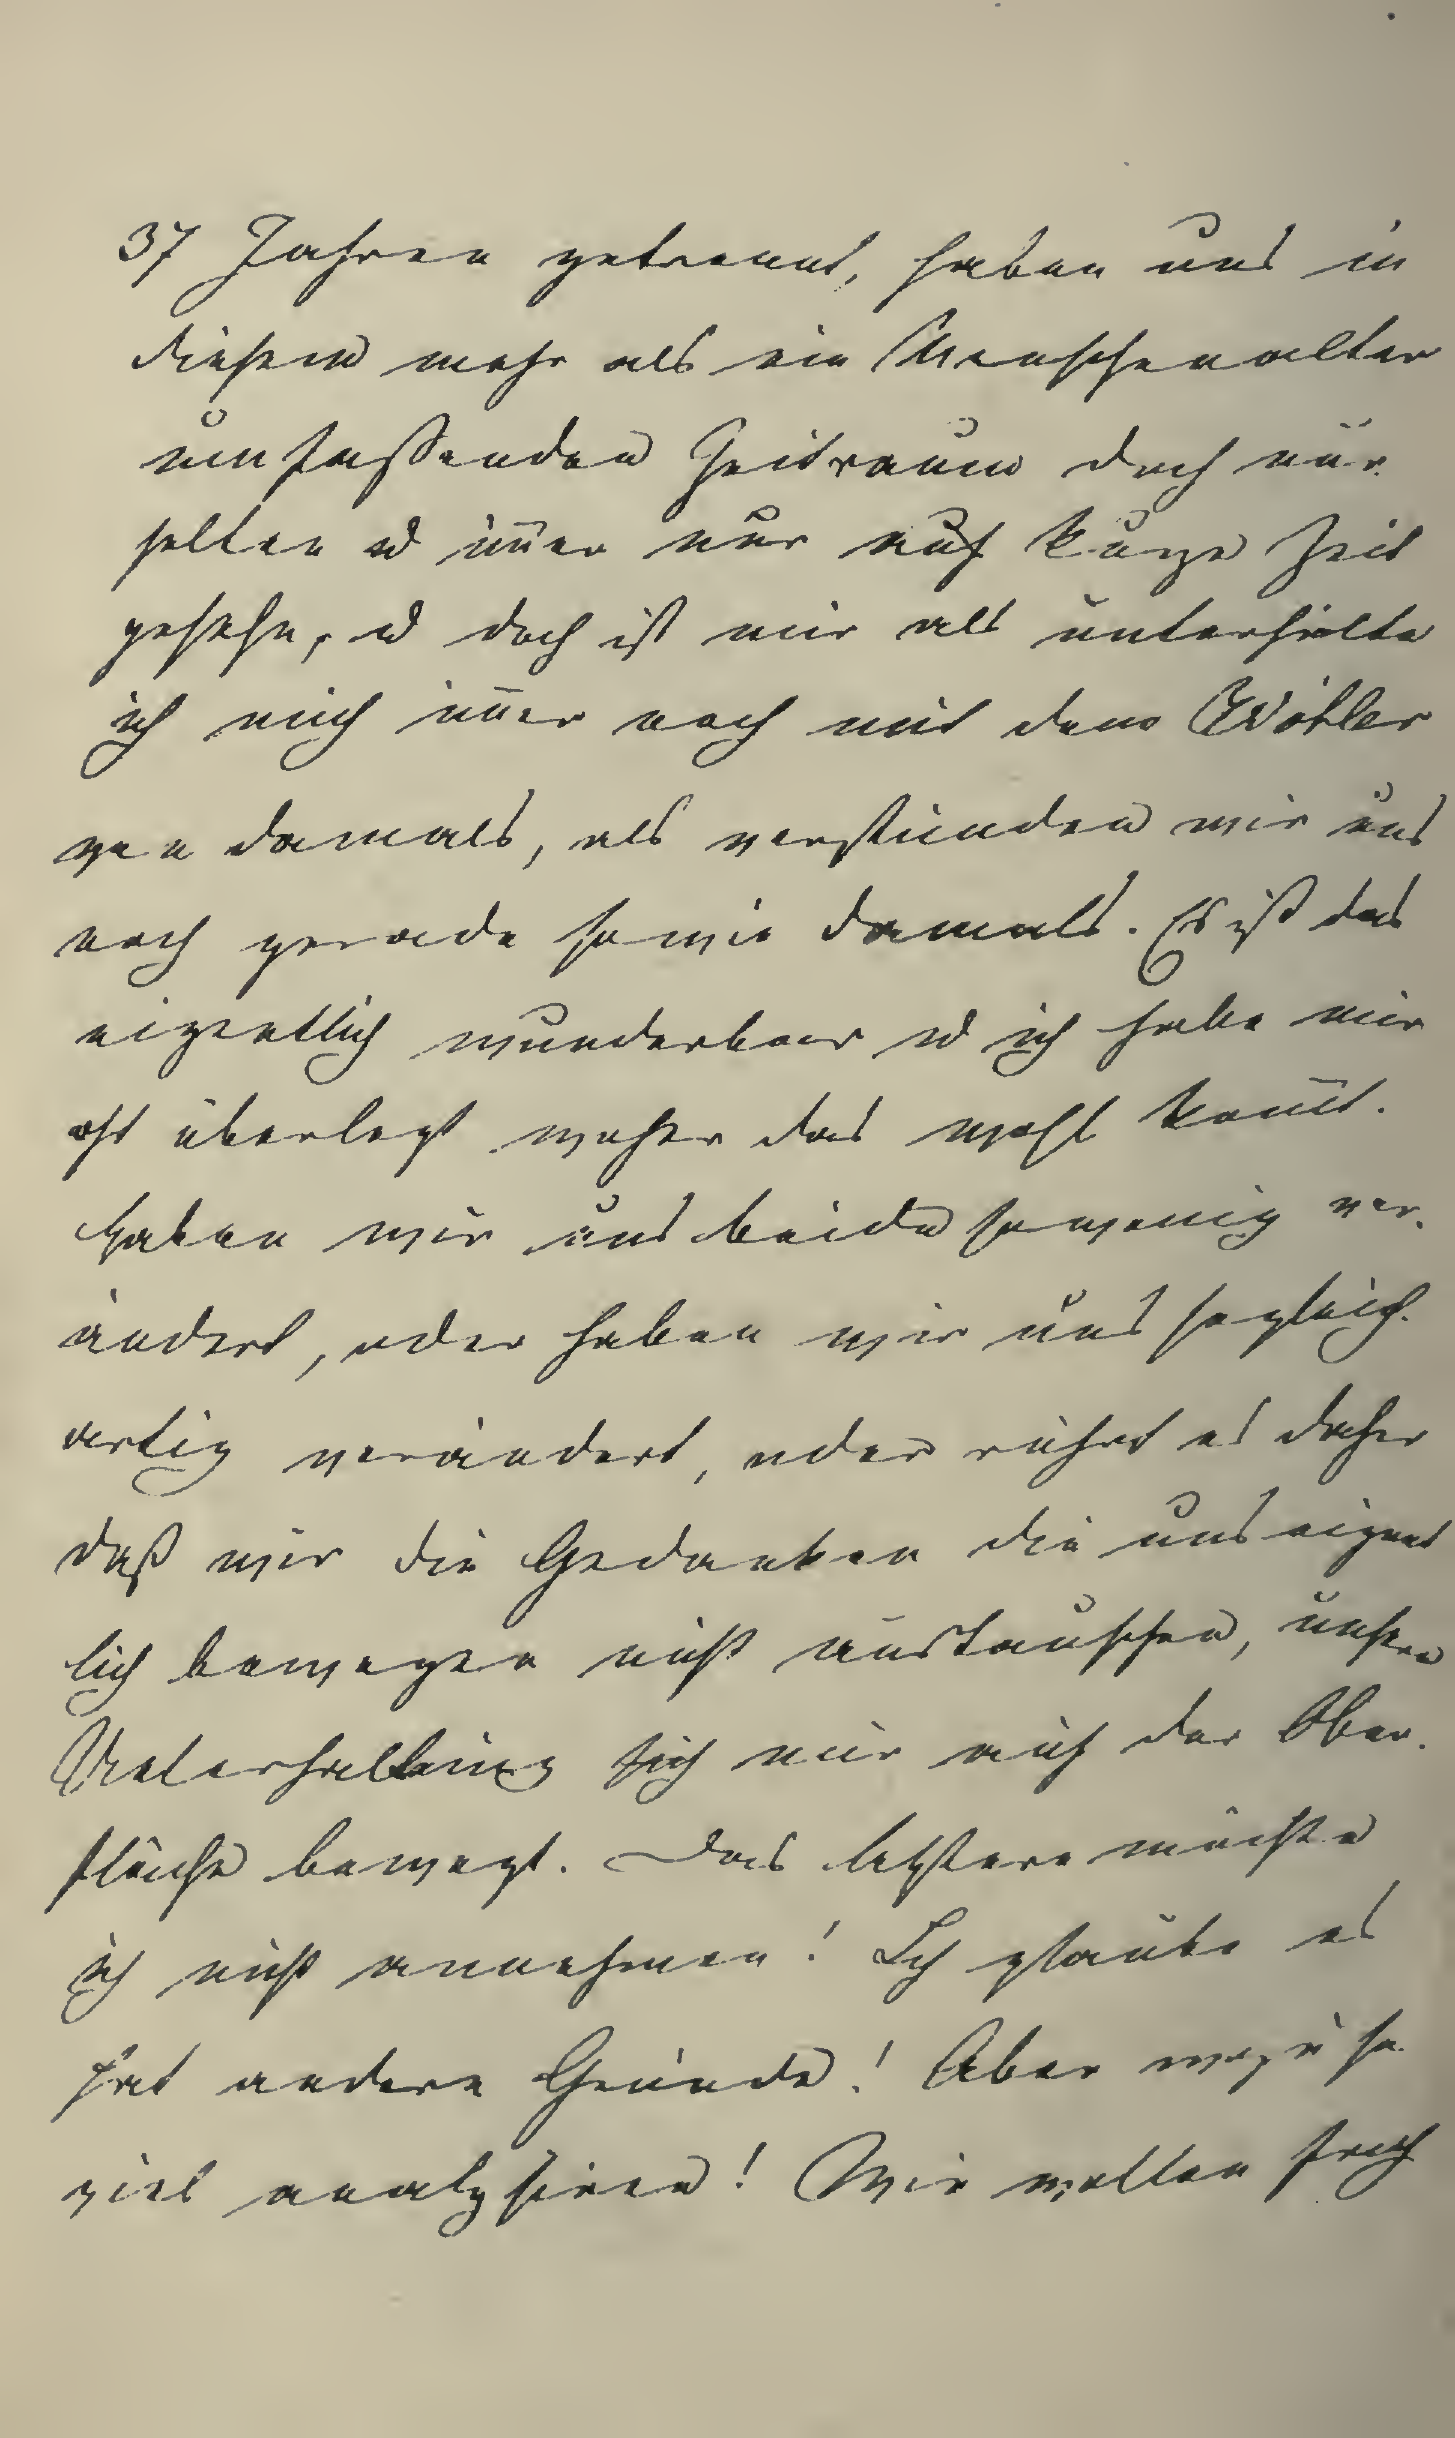 37 Jahren getrennt, haben uns in
diesem mehr als ein Menschenalter
umfassenden Zeitraum doch nur
selten u im̅er nur auf kurze Zeit
gesehn, u doch ist mir als unterhielte
ich mich im̅er noch mit dem Wöhler
von damals, als verstünden wir uns
noch gerade so wie damals. Es ist das
eigentlich wunderbar u ich habe mir
oft überlegt woher das wohl kom̅t.
Haben wir uns beide so wenig ver-
ändert, oder haben wir uns so gleich-
artig verändert, oder rührt es daher
daß wir die Gedanken die uns eigent
lich bewegen nicht austauschen, unsere
Unterhaltung sich nur auf der Ober-
fläche bewegt. Das letztere möchte
ich nicht annehmen! Ich glaube es
hat andere Gründe! Aber wozu so
viel analysiren! Wir wollen froh